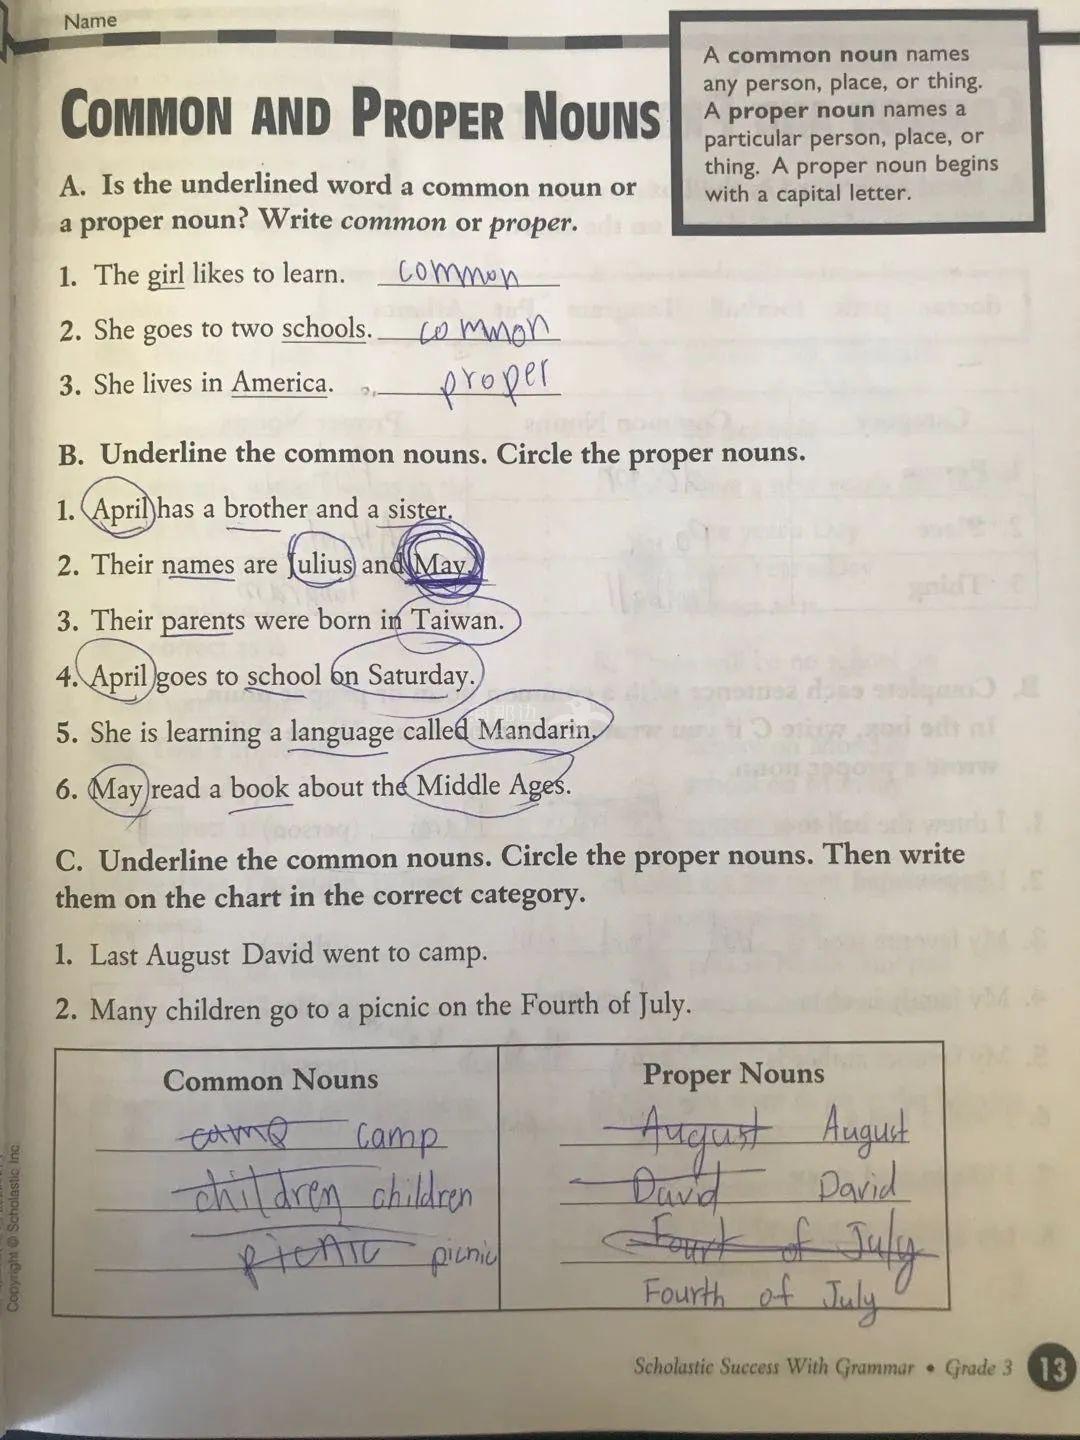 Name
A common noun names
any person, place, or thing.
A proper noun names a
particular person, place, or
thing. A proper noun begins
with a capital letter.
COMMON AND PROPER NOUNS
A. Is the underlined word a common noun or
a proper noun? Write common or proper.
1. The girl likes to learn. common
2. She goes to two schools. common
3. She lives in America. proper
B. Underline the common nouns. Circle the proper nouns.
1. April has a brother and a sister.
2. Their names are Julius and May.
3. Their parents were born in Taiwan.
4. April goes to school on Saturday.
5. She is learning a language called Mandarin.
6. May read a book about the Middle Ages.
C. Underline the common nouns. Circle the proper nouns. Then write
them on the chart in the correct category.
1. Last August David went to camp.
2. Many children go to a picnic on the Fourth of July.
Common Nouns Proper Nouns
camp August August
children children David David
picnic picnic of July
Fourth of July
Copyright © Scholastic Inc.
Scholastic Success With Grammar • Grade 3 13